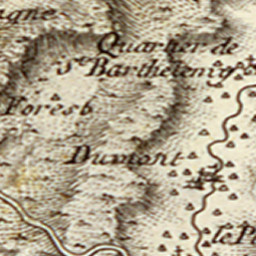 Quartier de
St Barthelemy
Forest
Dumont
le P